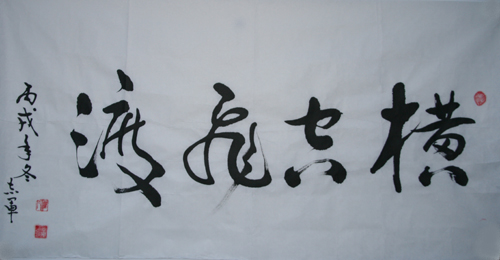 横空飞渡
丙戌年冬